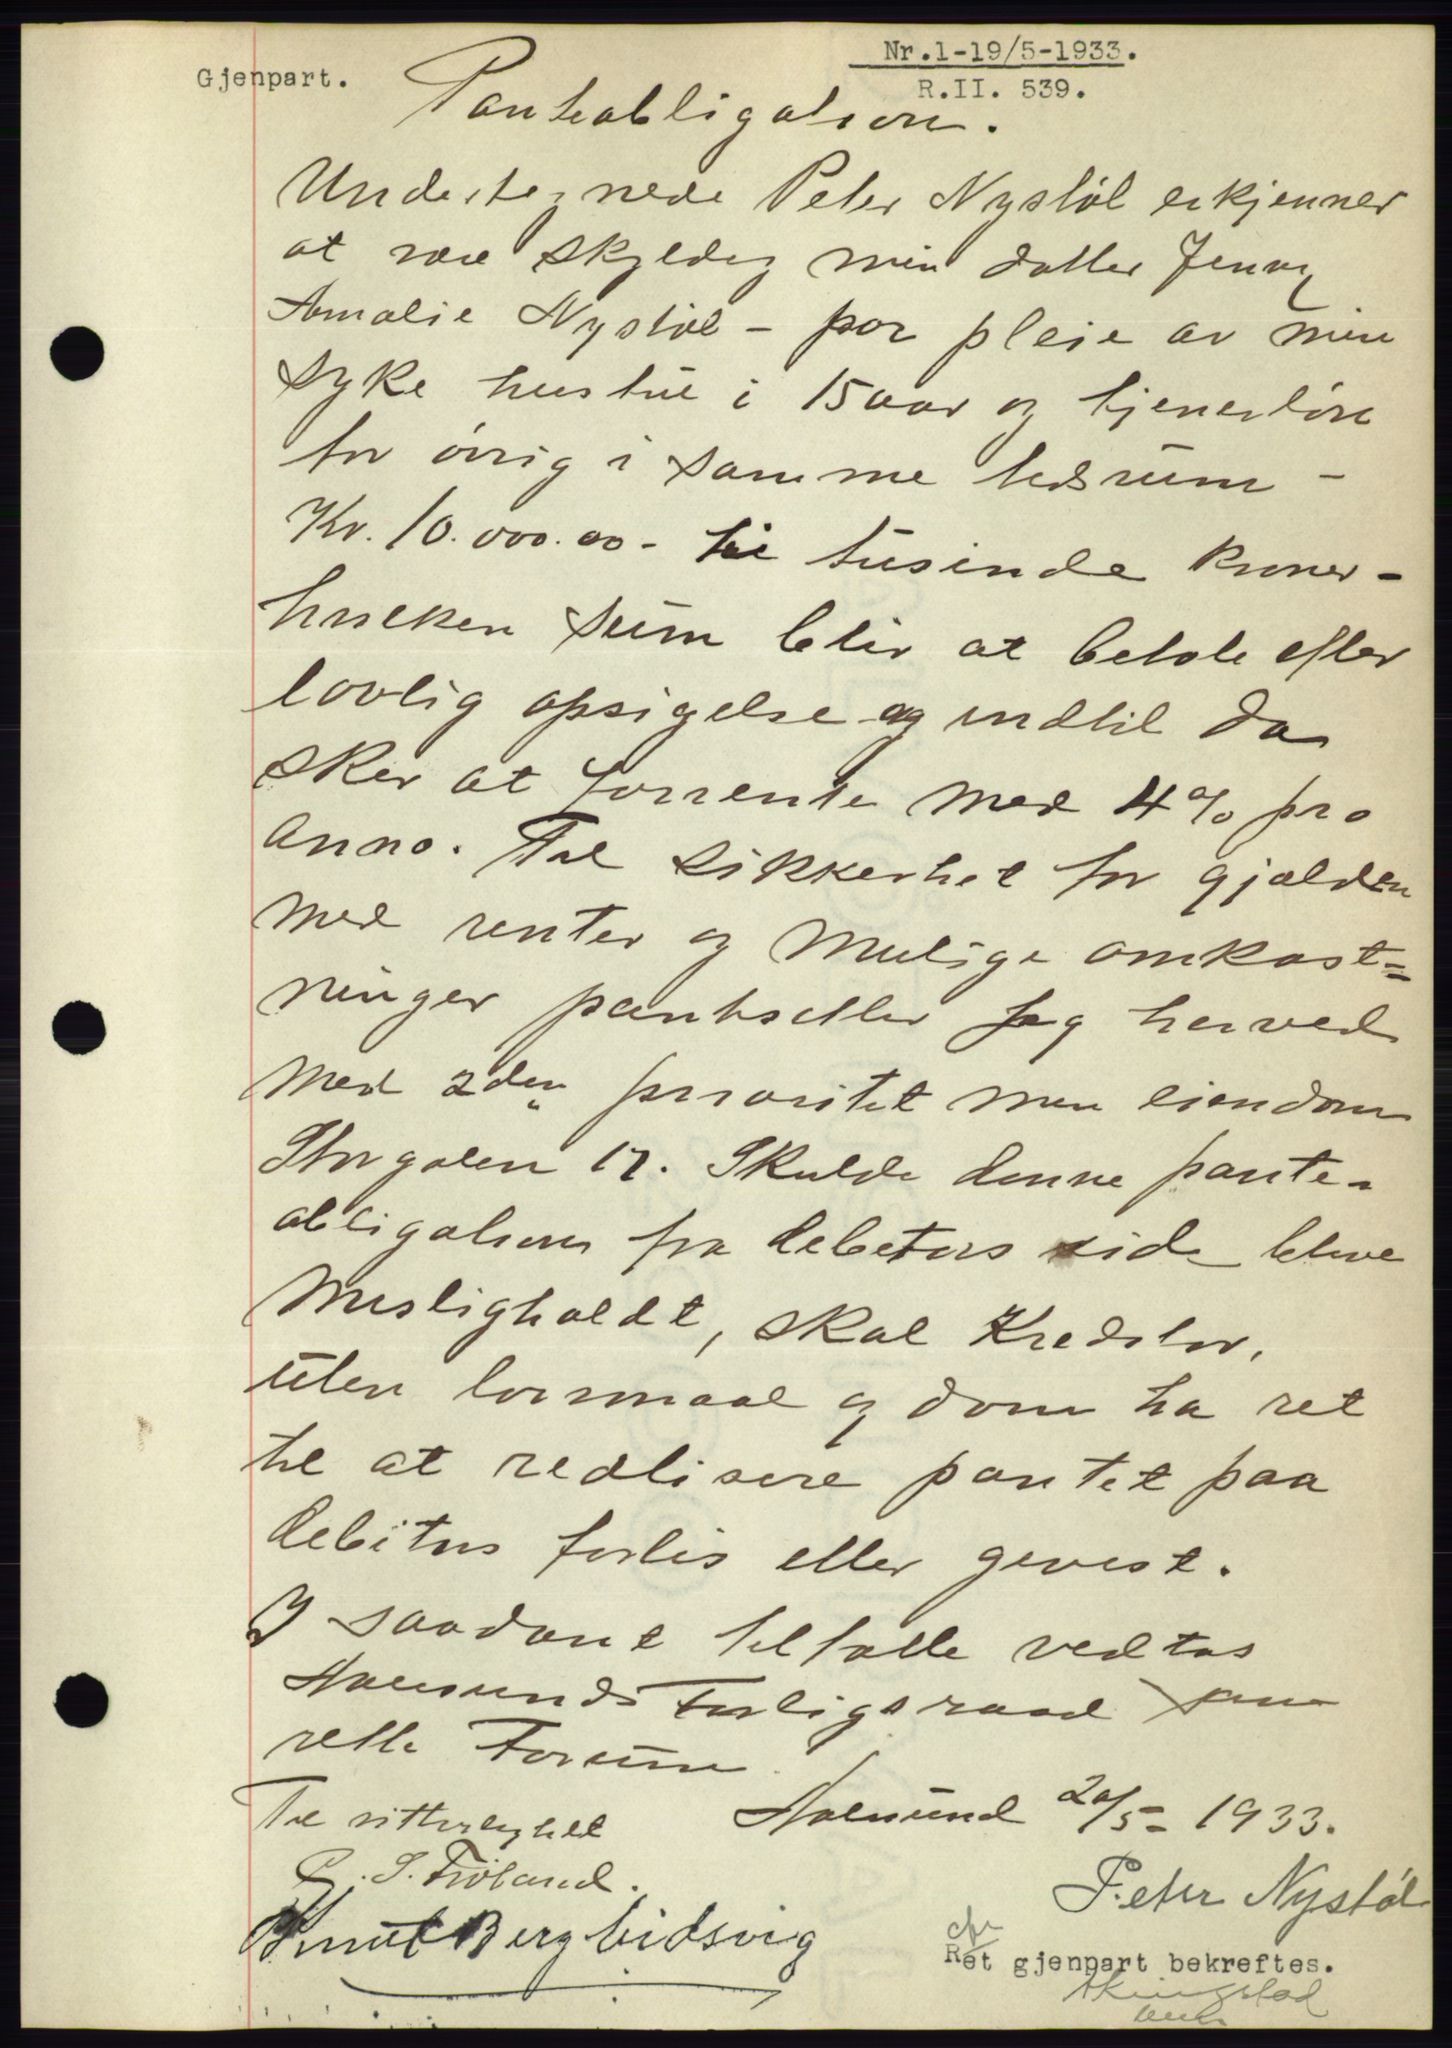 Nr.1-19/5-1933.
Gjenpart.
R.II. 539.
Panteobligation.
Undertegnede Peter Nystöl erkjenner
at være skyldig min datter Jenny
Amalie Nystöl - for pleie av min
syke hustru i 15 aar og tjenerlön
for övrig i samme tidsrum -
Kr. 10.000.00 - ti tusinde kroner -
hvilken sum blir at betale efter
lovlig opsigelse og indtil da
sker at forrente med 4% pro
anno. Til sikkerhet for gjælden
med renter og mulige omkost=
ninger pantsetter jeg herved
med 2den prioritet min eiendom
Storgaten 17. Skulde denne pante-
obligation fra debitors side blive
misligholdt, skal Kreditor,
uten lovmaal og dom ha ret
til at realisere pantet paa
debitors forlis eller gevist.
I saadant tilfælle vedtas
Aalesunds Forligsraad som
rette Forum
Til vitterlighet
Aalesund 20/5- 1933.
S. Fröland.
Peter Nystöl
Knut Berg Eidsvig
Ret gjenpart bekreftes.